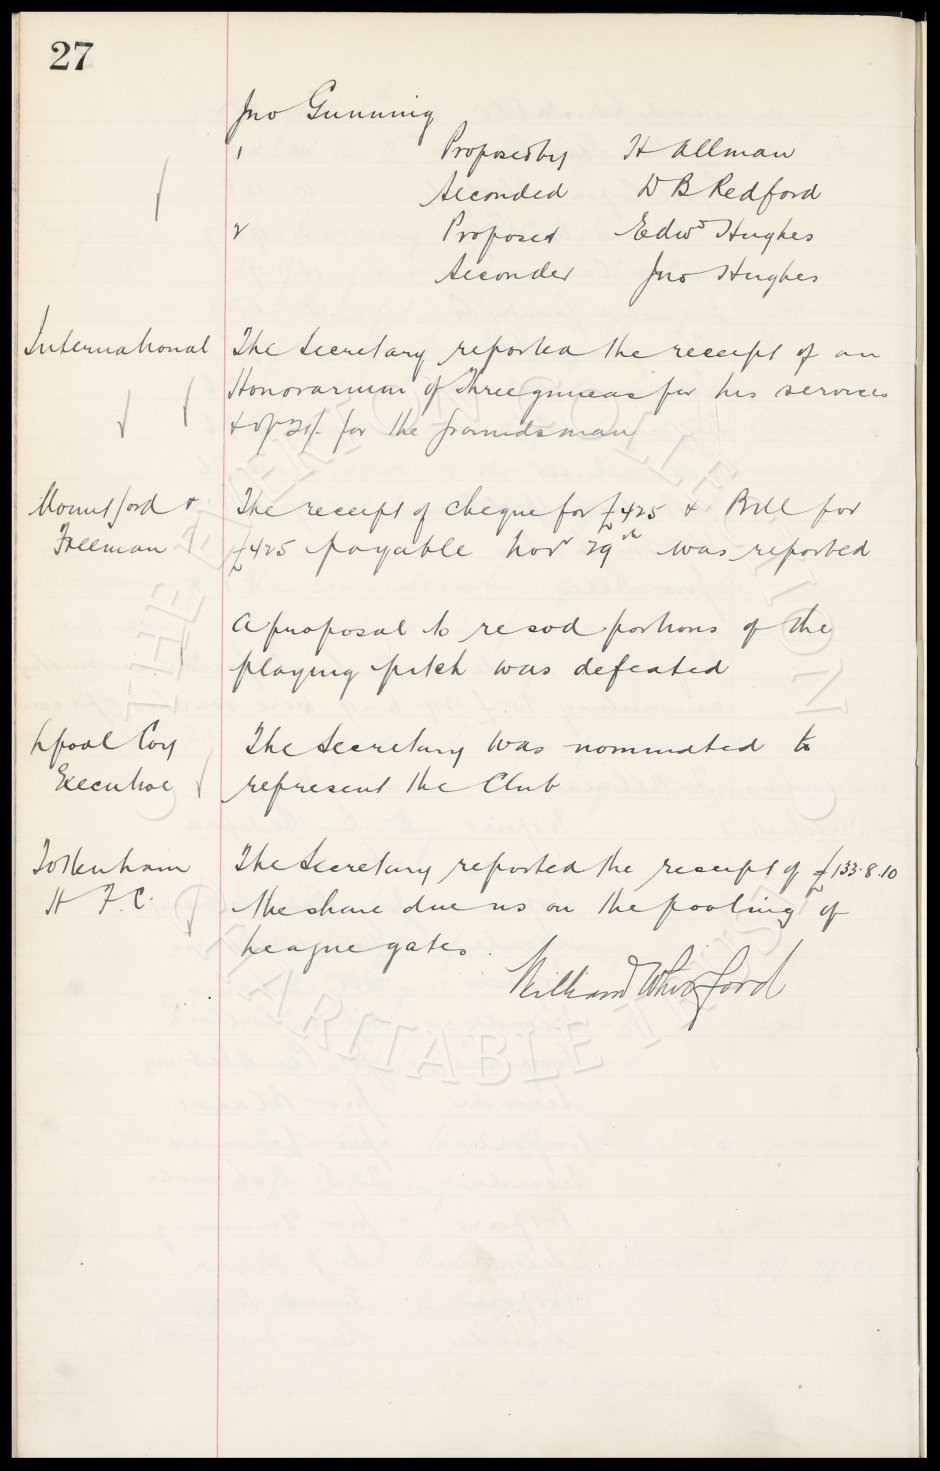 27
Jno Gunning
1 Proposed by H Allman
Seconded W B Redford
2 Proposer Edwd Hughes
Seconder Jno Hughes
International The Secretary reported the receipt of an
Honorarium of Three guineas for his services
+ of 21/- for the groundsman
Mountford + The receipt of cheque for £425 + Bill for
Freeman £425 payable Novr 29th was reported
A proposal to resod portions of the
playing pitch was defeated
Lpool Coy The Secretary was nominated to
Executive represent the Club
Tottenham The Secretary reported the receipt of £133.8.10
H F.C. the share due us on the pooling of
League gates.
THE EVERTON COLLECTION
CHARITABLE TRUST